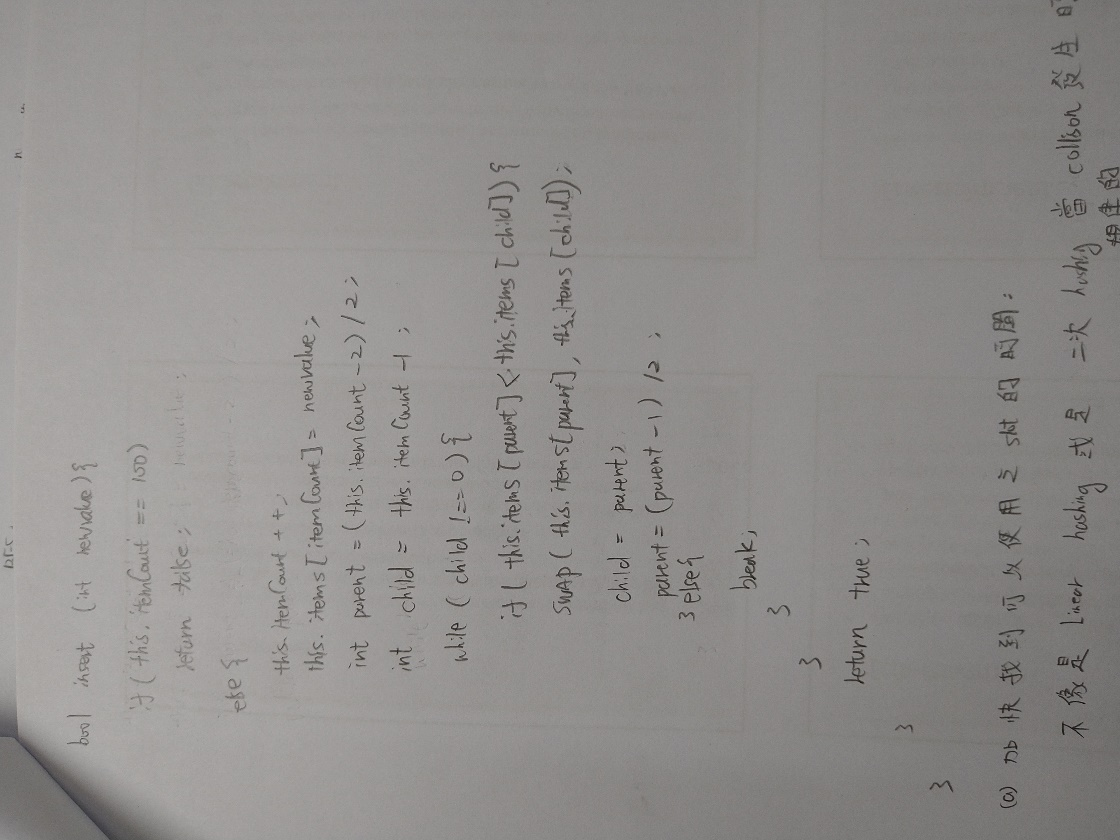 bool insert (int newvalue){
if (this.itemCount == 100)
return false;
else {
this.itemCount ++;
this.items[itemCount] = newvalue;
int parent = (this.itemCount -2) /2;
int child = this.itemCount -1;
while (child != 0){
if (this.items[parent] < this.items[child]){
SWAP (this.items[parent], this.items[child]);
child = parent;
parent = (parent -1) /2;
} else{
break;
}
}
return true;
}
}
(a) 加快找到可以使用之 slot 的時間:
不像是 Linear hashing 或是 二次 hashing 當 collison 發生